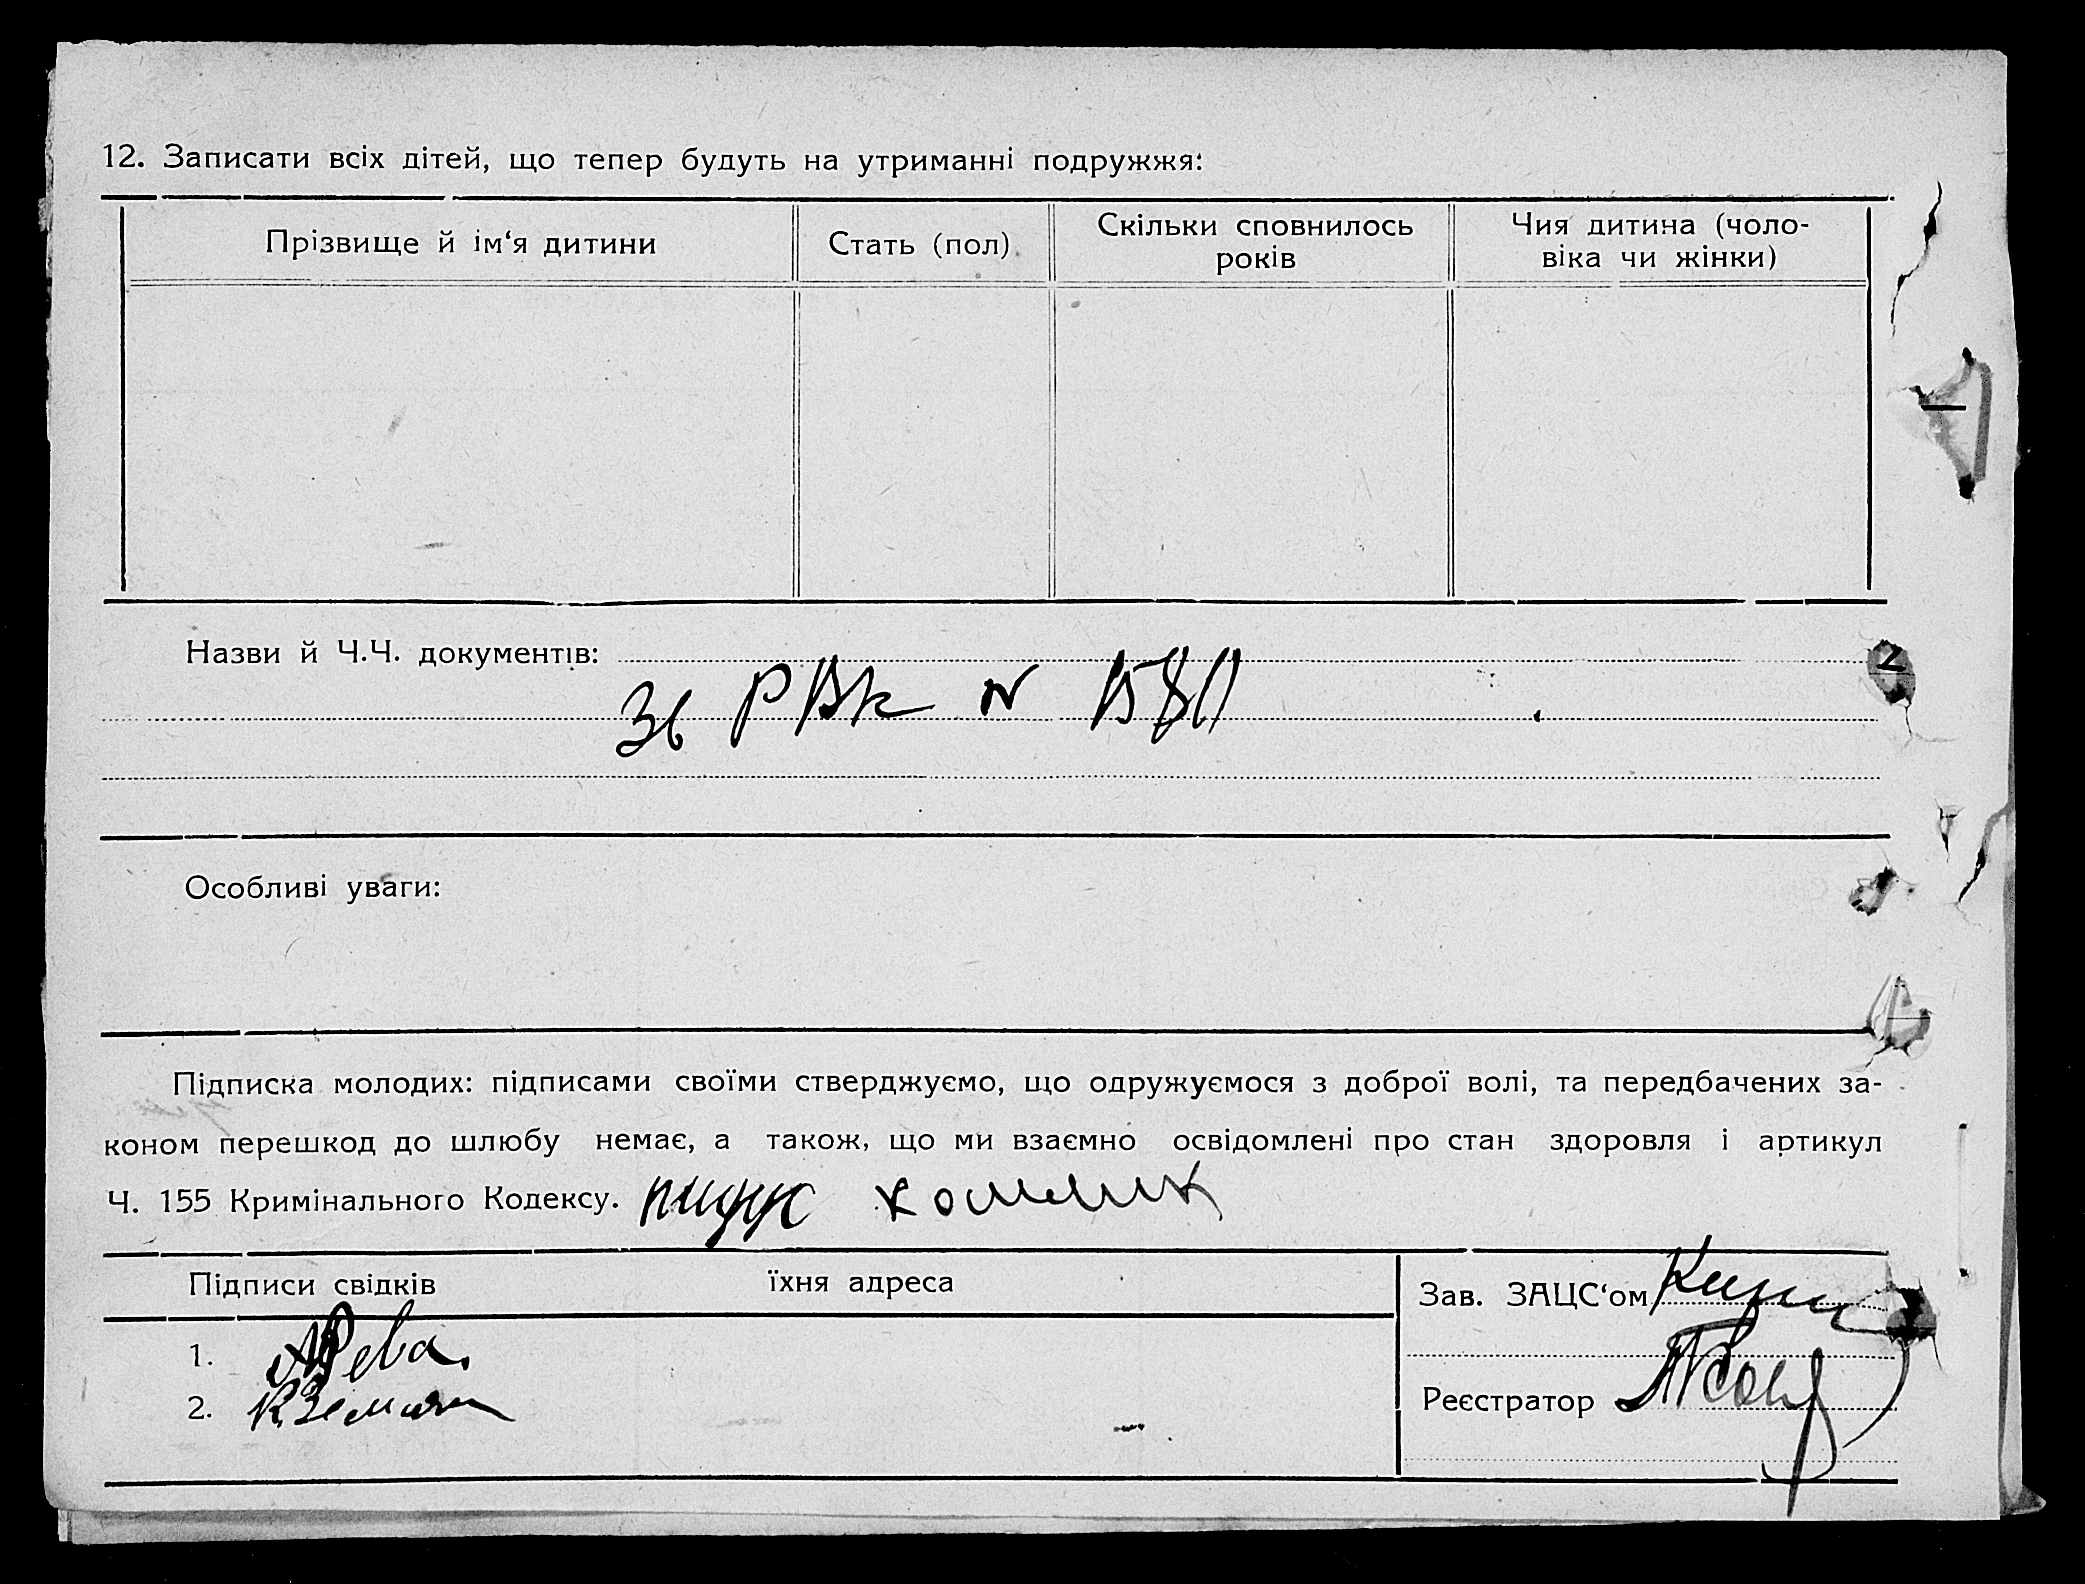 12. Записати всіх дітей, що тепер будуть на утриманні подружжя:
Прізвище й ім‘я дитини
Стать (пол)
Скільки сповнилось
років
Чия дитина (чоло-
віка чи жінки)
Назви й Ч.Ч. документів:
Зб РВК N
Особливі уваги:
Підписка молодих: підписами своїми стверджуємо, що одружуємося з доброї волі, та передбачених за-
коном перешкод до шлюбу немає, а також, що ми взаємно освідомлені про стан здоровля і артикул
Ч. 155 Кримінального Кодексу.
Підписи свідків
їхня адреса
Зав. ЗАЦС‘ом
1. Рева
2.
Реєстратор